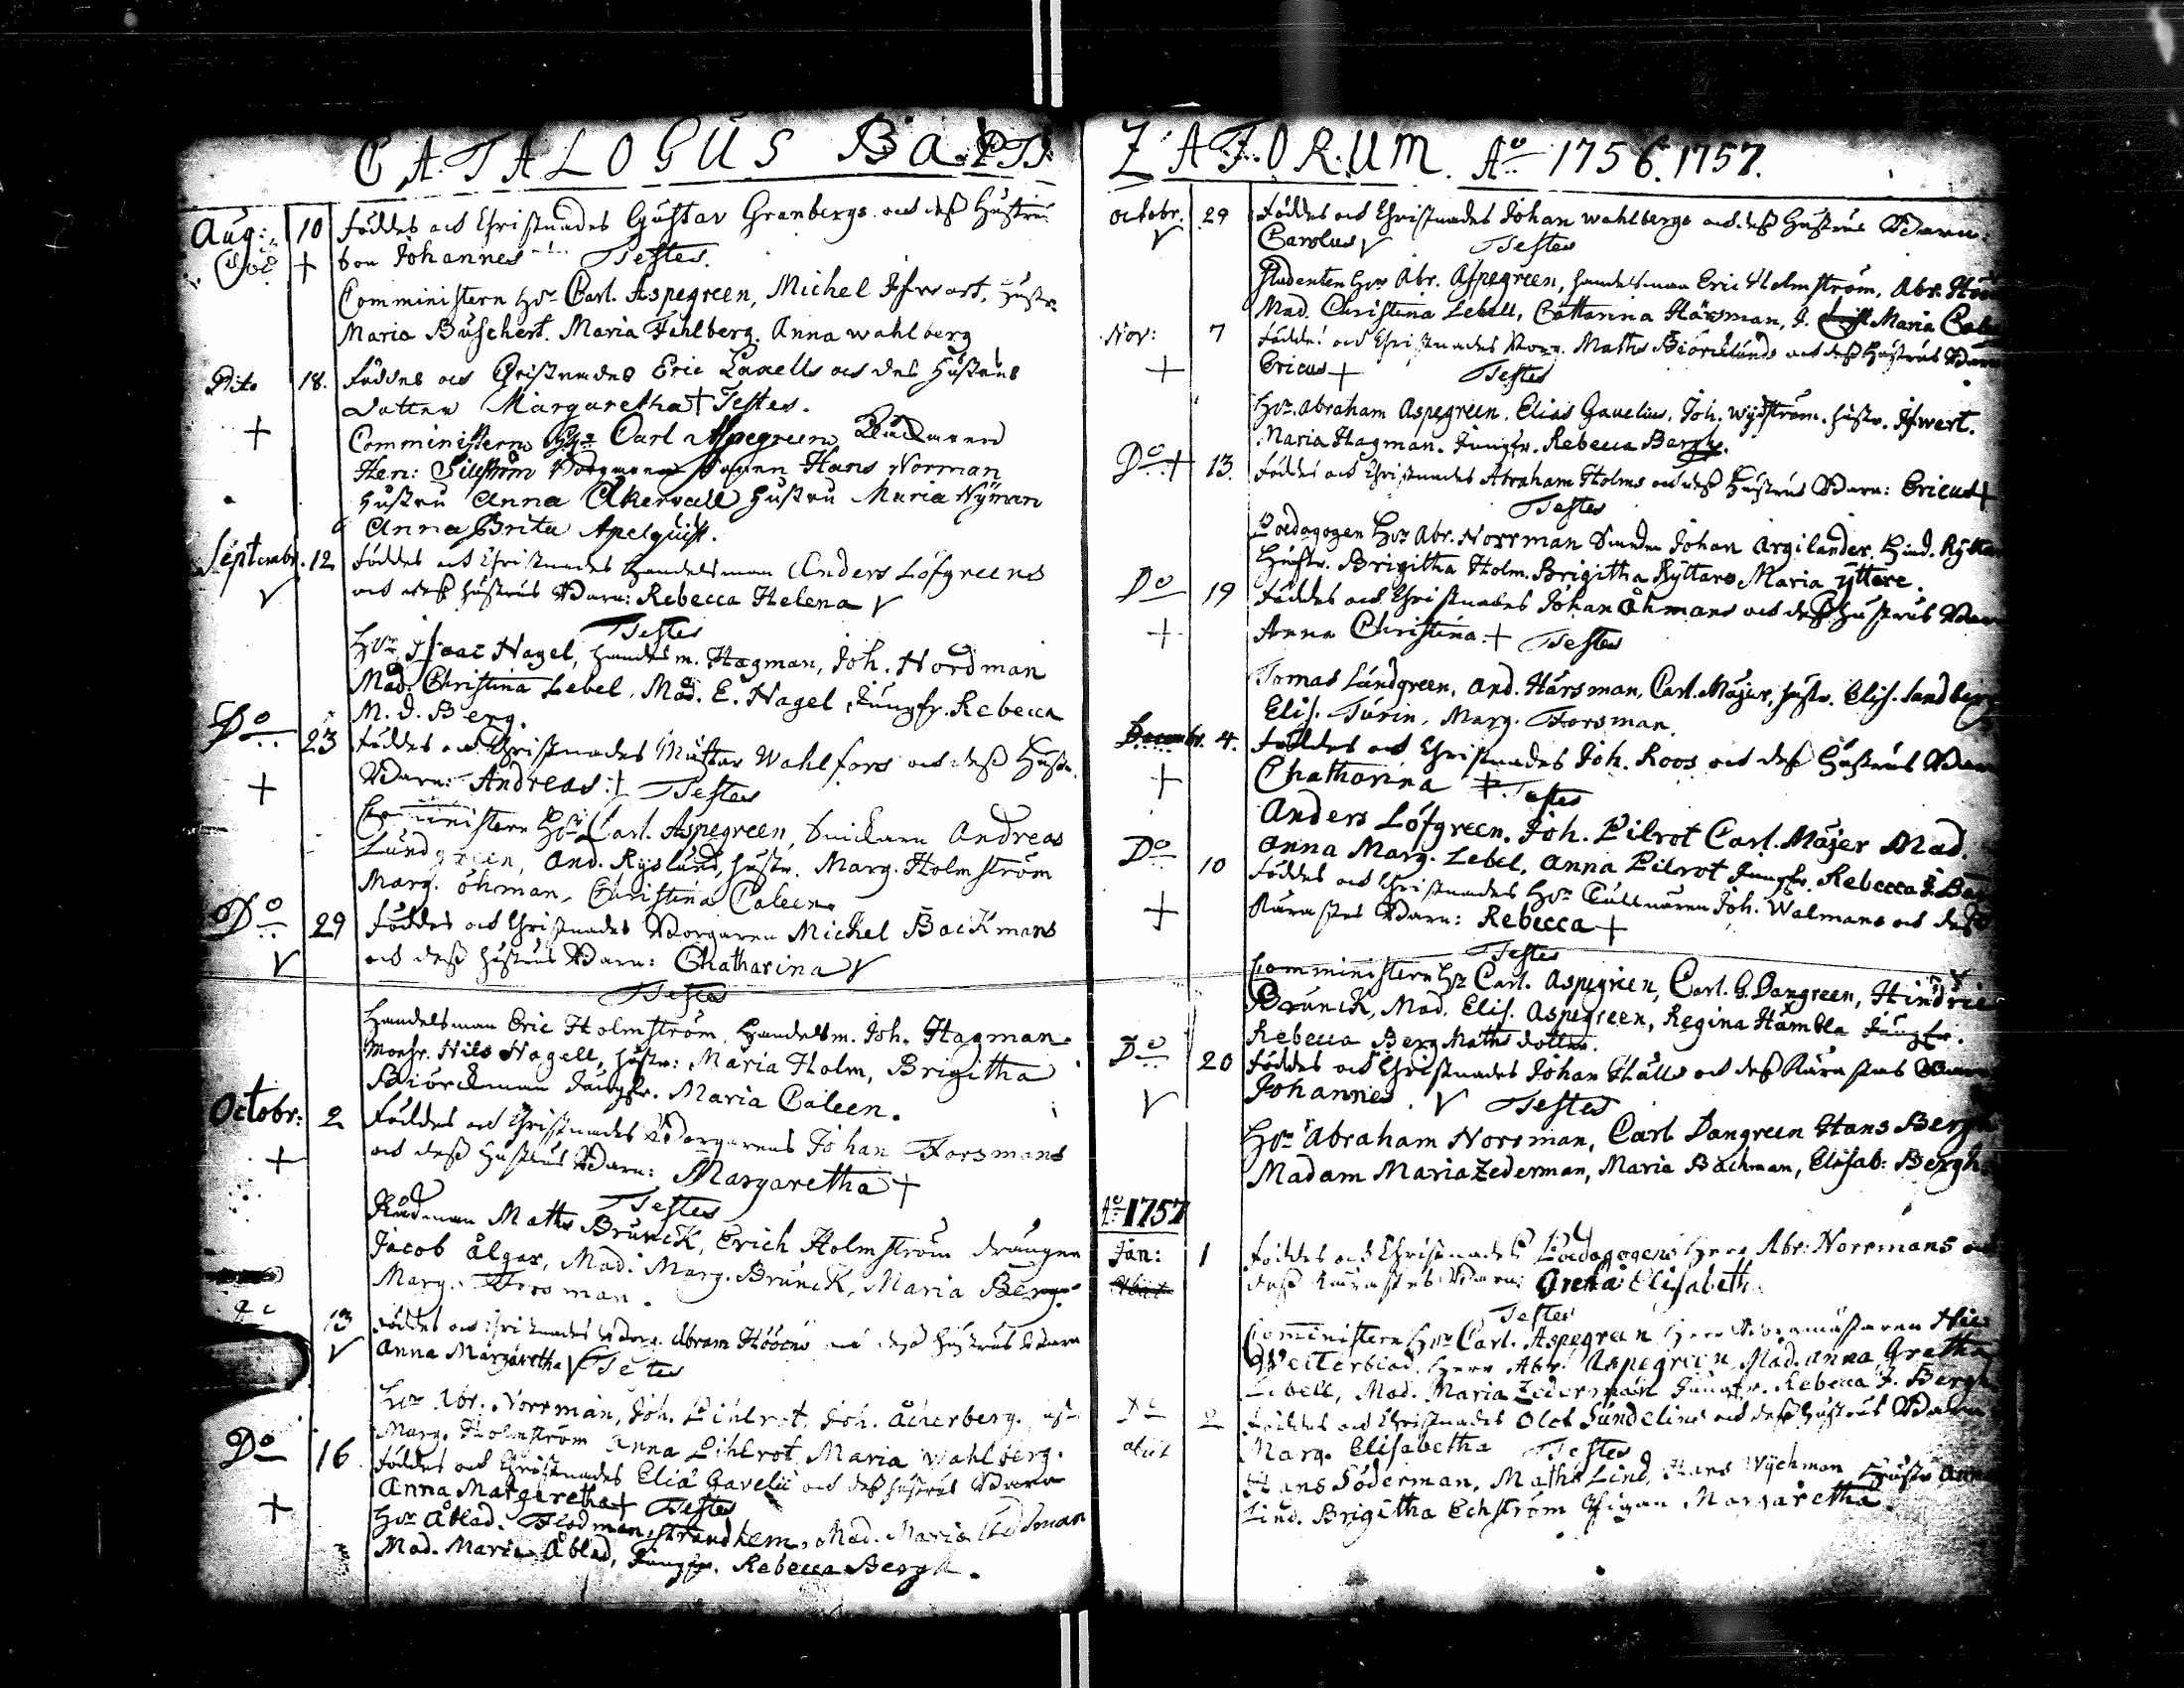 CATALOGUS BAPTI
Aug: 10 Föddes och Christnades Gustav Granbergs och deß Hustrus
son Johannes Testes.
Comministern Hr Carl. Aspegreen, Michel Ifwart, Hustr.
Maria Buschert. Maria Fahlberg. Anna Wahlberg
Dito 18. Föddes och Christnades Eric Lanells och des Hustrus
dotter Margaretha + Testes.
+ Comministern Hr Carl Aspegreen
Hen: Sillström Hans Norman
Hustru Anna Åkerwall Hustru Maria Nyman
Anna Brita Apelquist.
Septembr. 12 Föddes och Christnades Handelsman Anders Löfgreens
V och deß hustrus Barn: Rebecca Helena V
Testes
Hr Isaac Nagel, Handelsm. Hagman, Joh. Nordman
Mad. Christina Lebel, Mad. E. Nagel, Jungfr. Rebecca
M. d. Berg.
Do 23 Föddes och Christnades Gustav Wahlfors och deß Hustr.
+ Barn: Andreas + Testes
Comministern Hr Carl. Aspegreen, Andreas
Lundgreen, And. Ryslund, Hustr. Marg. Holmström
Marg. Öhman, Christina Caleen
Do 29 Föddes och Christnades Borgaren Michel Backmans
V och deß hustrus Barn: Chatharina V
Testes
Handelsman Eric Holmström, Handelsm. Joh. Hagman
Monsr. Nils Nagell, Hustr: Maria Holm, Brigitha
Biörckman Jungfr. Maria Caleen.
Octobr: 2 Föddes och Christnades Borgarens Johan Forsmans
+ och deß Hustrus Barn: Margaretha +
Testes
Rådman Matts Brunck, Erich Holmström drängen
Jacob Älgar, Mad. Marg. Brunck, Maria Berg.
Marg. Forsman.
13 Föddes och Christnades Borg. Abram Höökens och deß Hustrus Barn
V Anna Margaretha V Testes
Hr Abr. Norrman, Joh. Pihlrot, Joh. Åckerberg.
Marg. Holmström Anna Pihlrot, Maria Wahlberg.
Do 16 Föddes och Christnades Eliæ Gavelii och deß hustrus Barn
Anna Margaretha + Testes
+ Hr Åblad. Flodman, Strandhem, Mad. Maria
Mad. Maria Åblad, Jungfr. Rebecca Bergh.
ZATORUM. Ao 1756. 1757.
Octobr. 29 Föddes och Christnades Johan Wahlbergs och deß Hustrus Barn:
V Carolus V Testes
Studenten Hr Abr. Aspegreen, Handelsman Eric Holmström, Abr.
Mad. Christina Lebell, Cattarina Harsman, J. Maria
Nov: 7 Föddes och Christnades Borg. Matts Biörcklunds och deß Hustrus Barn
+ Ericus + Testes
Hr Abraham Aspegreen. Elias Gavelius, Joh. Wydström. Hustr. Ifwert.
Maria Hagman. Jungfr. Rebecca Bergh.
Do + 13. Föddes och Christnades Abraham Holms och deß Hustrus Barn: Ericus +
Testes
Pædagogen Hr Abr. Norrman Johan Argilander. Hind.
Hustr. Brigitha Holm. Brigitha Ryttare Maria Yttere.
Do 19 Föddes och Christnades Johan Åhmans och deß Hustrus Barn
+ Anna Christina + Testes
Tomas Lundgreen, And. Harsman, Carl. Majer, Hustr. Elis. Sandberg
Elis. Turin, Marg. Forsman.
Decembr. 4. Föddes och Christnades Joh. Roos och deß Hustrus Barn
+ Chatharina + Testes
Anders Löfgreen, Joh. Pilrot Carl. Majer Mad.
Anna Marg. Lebel, Anna Pilrot Jungfr. Rebecca J.
Do 10 Föddes och Christnades Hr Joh. Walmans och deß
+ Kärastes Barn: Rebecca +
Testes
Comministern Hr Carl. Aspegreen, Carl. G. Dangreen,
Brunck, Mad. Elis. Aspegreen, Regina Hambla Jungfr.
Rebecca Berg Matts dotter.
Do 20 Föddes och Christnades Johan och deß Kärastes Barn
V Johannes. V Testes
Hr Abraham Norrman, Carl Dangreen Hans Bergh
Madam Maria Zederman, Maria Bachman, Elisab: Bergh.
Ao 1757
Jan: 1 Föddes och Christnades Pædagogens Herr Abr: Norrmans och
deß Kärastes Barn: Greta Elisabeth.
Testes
Comministern Hr Carl. Aspegreen Herr Borgmästaren
Herr Abr. Aspegreen, Mad. Anna Gretha
Lebell, Mad. Maria Zederman Jungfr. Rebecca J. Bergh
2 Föddes och Christnades Olof Sundelins och deß hustrus Barn
Marg. Elisabetha Testes
Hans Söderman, Matts Lind, Hans Wychman Hustr.
Lind. Brigitha Echström Pigan Margaretha.